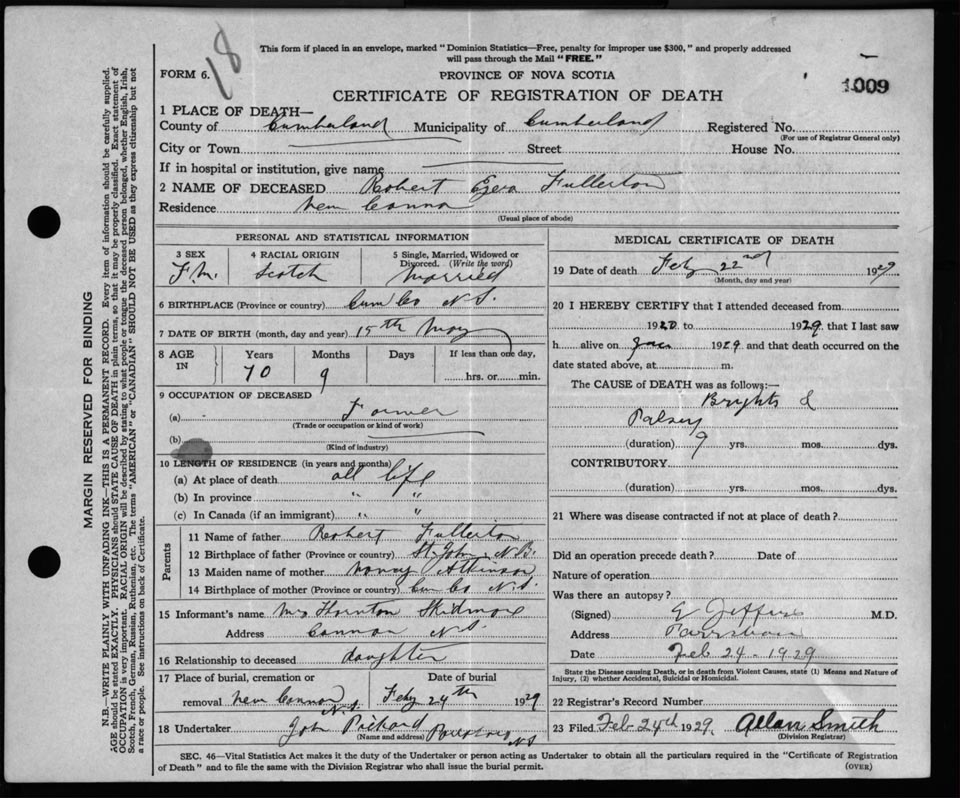 18
This form if placed in an envelope, marked "Dominion Statistics—Free, penalty for improper use $300," and properly addressed
will pass through the Mail "FREE."
FORM 6.
PROVINCE OF NOVA SCOTIA
1009
CERTIFICATE OF REGISTRATION OF DEATH
1 PLACE OF DEATH—
County of Cumberland Municipality of Cumberland Registered No.
(For use of Registrar General only)
City or Town Street House No.
If in hospital or institution, give name
2 NAME OF DECEASED Robert Ezra Fullerton
Residence New Canna
(Usual place of abode)
PERSONAL AND STATISTICAL INFORMATION
3 SEX 4 RACIAL ORIGIN 5 Single, Married, Widowed or
Divorced. (Write the word)
M. Scotch Married
6 BIRTHPLACE (Province or country) Cum Co N.S.
7 DATE OF BIRTH (month, day and year) 15th May
8 AGE IN Years Months Days If less than one day,
70 9 hrs. or min.
9 OCCUPATION OF DECEASED
(a) Farmer
(Trade or occupation or kind of work)
(b)
(Kind of industry)
10 LENGTH OF RESIDENCE (in years and months)
(a) At place of death all life
(b) In province " "
(c) In Canada (if an immigrant) " "
Parents
11 Name of father Robert Fullerton
12 Birthplace of father (Province or country) St. John N.B.
13 Maiden name of mother Nancy Atkinson
14 Birthplace of mother (Province or country) Cum Co N.S.
15 Informant's name Mrs Thornton Skidmore
Address Cannan N.S.
16 Relationship to deceased daughter
17 Place of burial, cremation or Date of burial
removal New Cannan N.S. Feby 24th 1929
18 Undertaker John Prichard Parrsboro N.S.
(Name and address)
MEDICAL CERTIFICATE OF DEATH
19 Date of death Feby 22nd 1929
(Month, day and year)
20 I HEREBY CERTIFY that I attended deceased from
1920 to 1929 that I last saw
h alive on Jan 1929 and that death occurred on the
date stated above, at m.
The CAUSE of DEATH was as follows:—
Brights &
Palsey
(duration) 9 yrs. mos. dys.
CONTRIBUTORY
(duration) yrs. mos. dys.
21 Where was disease contracted if not at place of death?
Did an operation precede death? Date of
Nature of operation
Was there an autopsy?
(Signed) Jeffries M.D.
Address Parrsboro
Date Feb 24-1929
State the Disease causing Death, or in death from Violent Causes, state (1) Means and Nature of
Injury, (2) whether Accidental, Suicidal or Homicidal.
22 Registrar's Record Number
23 Filed Feb 24th 1929. Allan Smith
(Division Registrar)
SEC. 46—Vital Statistics Act makes it the duty of the Undertaker or person acting as Undertaker to obtain all the particulars required in the "Certificate of Registration
of Death" and to file the same with the Division Registrar who shall issue the burial permit.
(OVER)
MARGIN RESERVED FOR BINDING
N.B.—WRITE PLAINLY WITH UNFADING INK—THIS IS A PERMANENT RECORD. Every item of information should be carefully supplied.
AGE should be stated EXACTLY. PHYSICIANS should STATE CAUSE OF DEATH in plain terms, so that it may be properly classified. Exact statement of
OCCUPATION is very important. RACIAL ORIGIN will be described by stating to what people or tongue the deceased person belonged, whether English, Irish,
Scotch, French, German, Russian, Ruthenian, etc. The terms "AMERICAN" or "CANADIAN" SHOULD NOT BE USED as they express citizenship but not
a race or people. See instructions on back of Certificate.